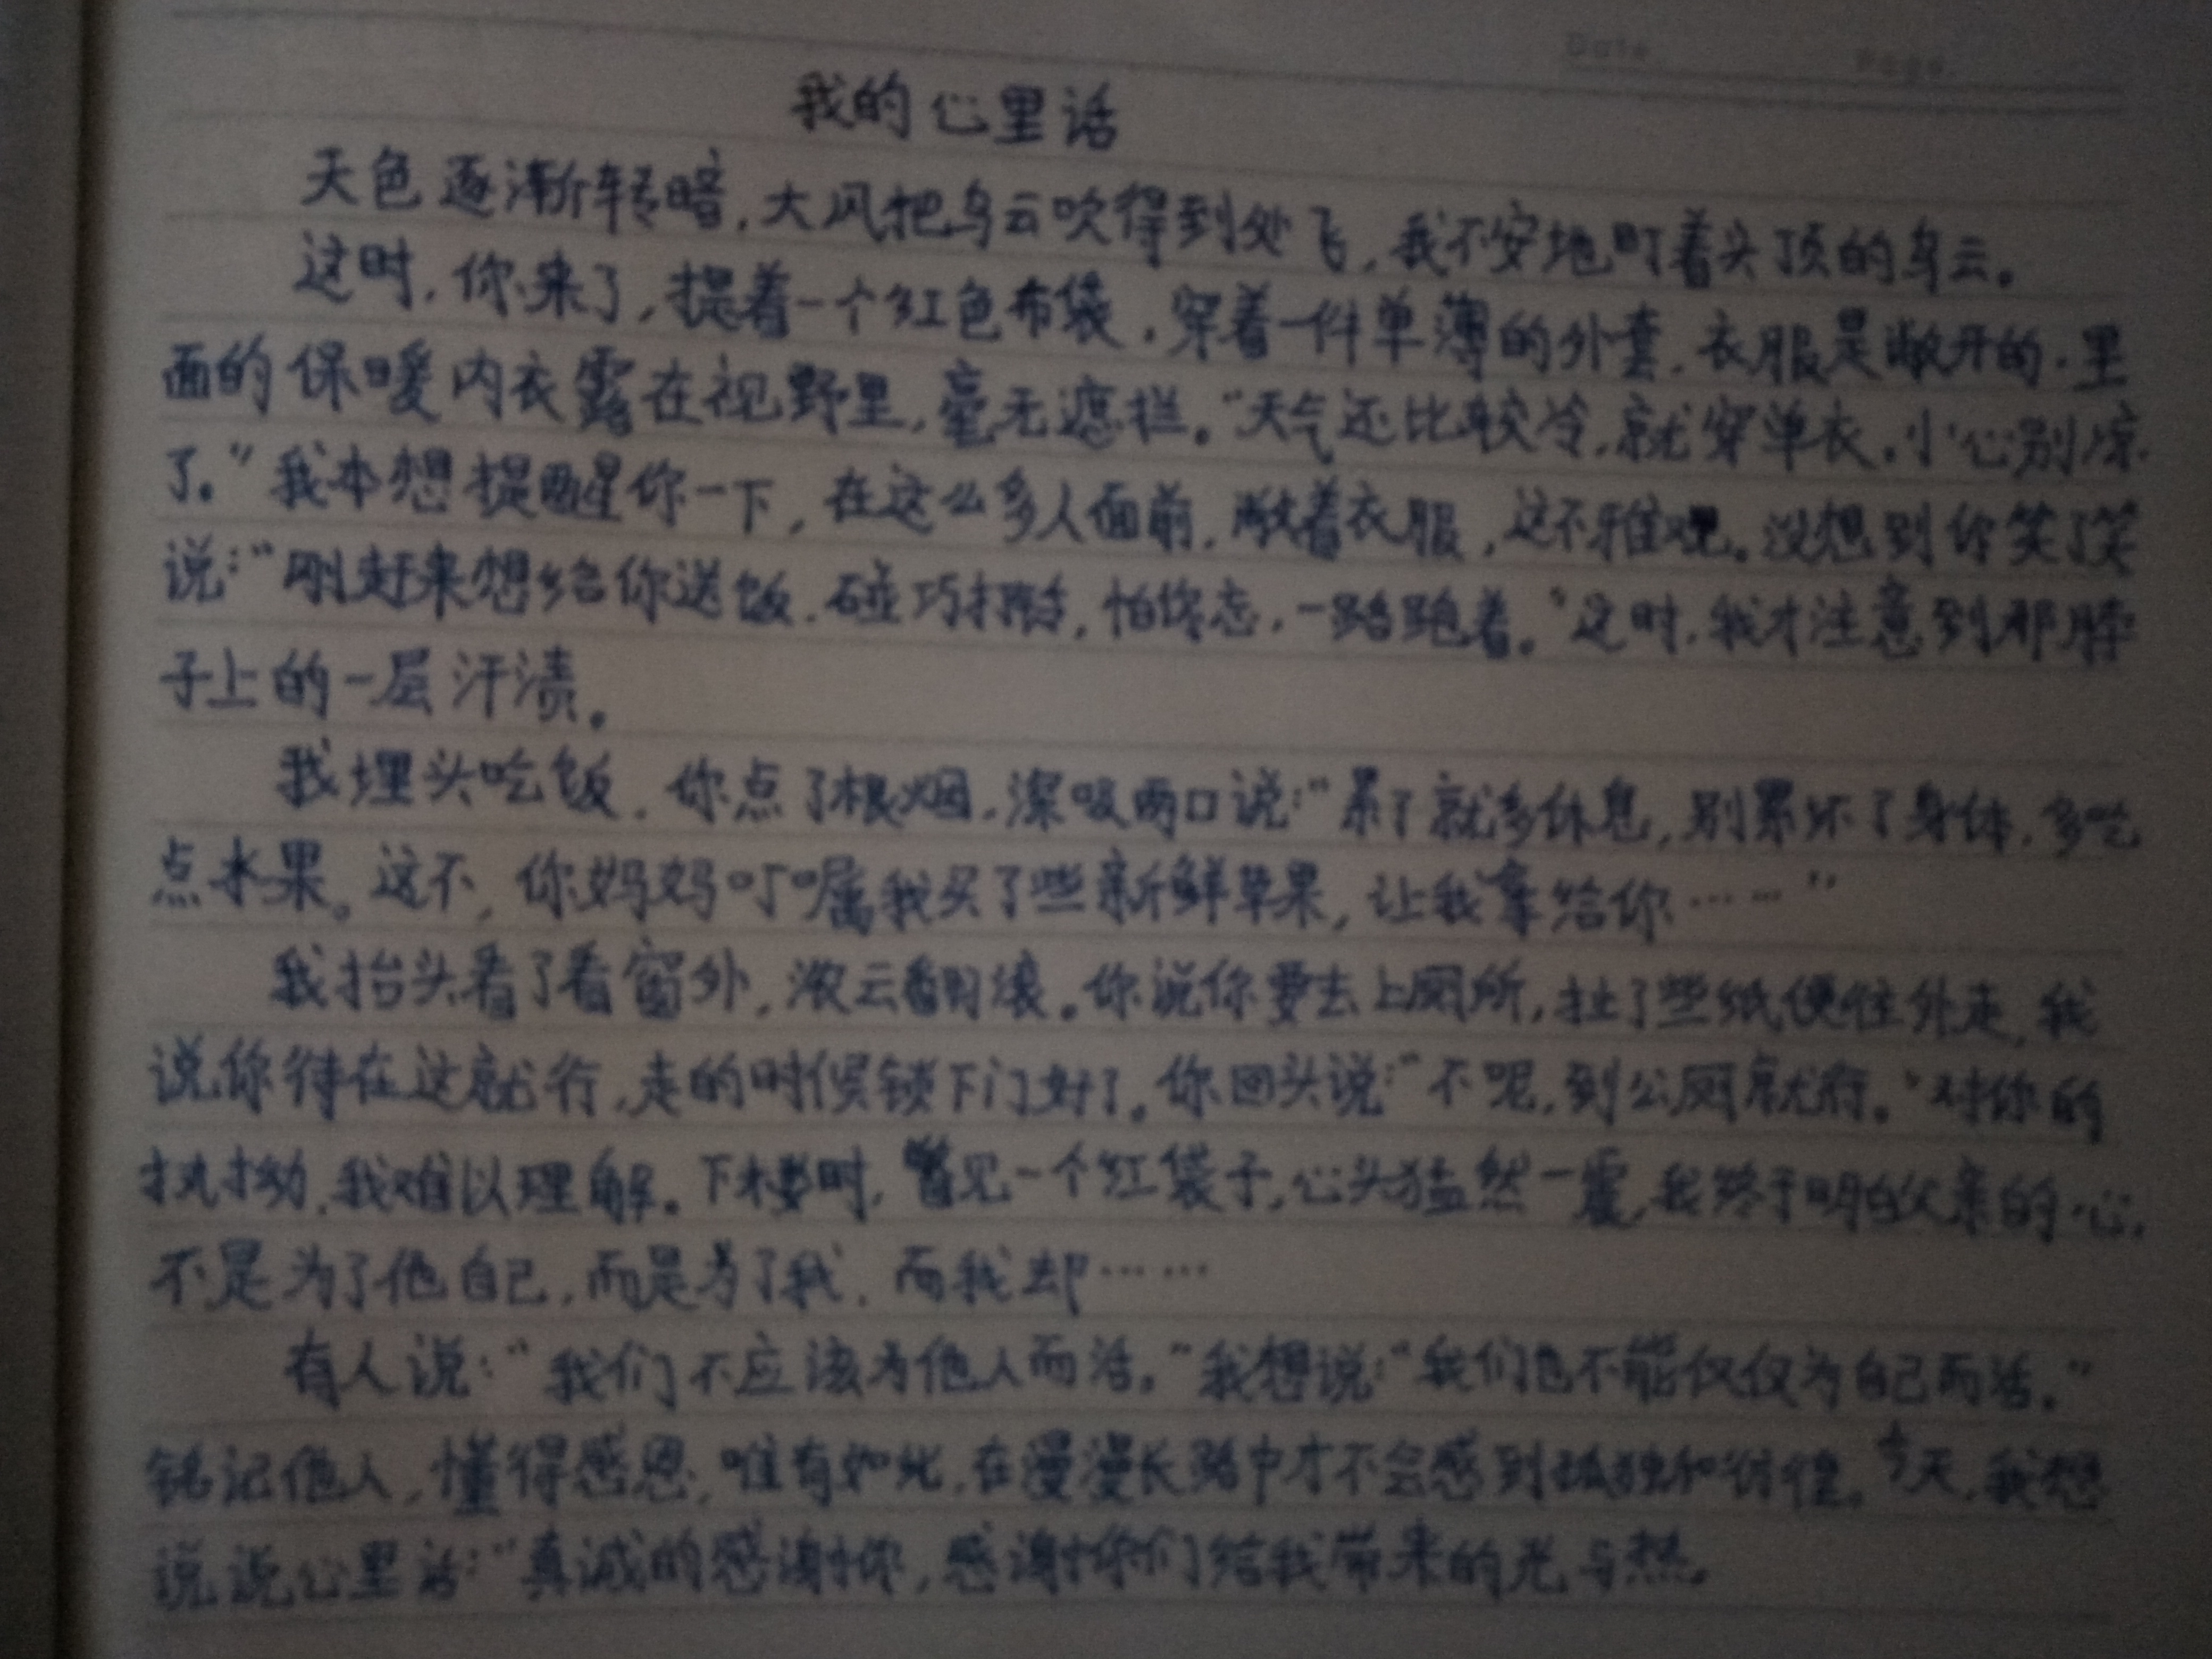 Date. Page.
我的心里话
天色逐渐转暗，大风把乌云吹得到处飞，我不安地盯着头顶的乌云。
这时，你来了，提着一个红色布袋，穿着一件单薄的外套，衣服是敞开的，里
面的保暖内衣露在视野里，毫无遮拦。“天气还比较冷，就穿单衣，小心别凉
了。”我本想提醒你一下，在这么多人面前，敞着衣服，这不雅观。没想到你笑了笑
说：“刚赶来想给你送饭，碰巧拥挤，怕你忘，一路跑着。”这时，我才注意到那脖
子上的一层汗渍。
我埋头吃饭，你点了根烟，深吸两口说：“累了就多休息，别累坏了身体，多吃
点水果。这不，你妈妈叮嘱我买了些新鲜苹果，让我拿给你……”
我抬头看了看窗外，浓云翻滚。你说你要去上厕所，扯了些纸便往外走，我
说你待在这就行，走的时候锁下门好了。你回头说：“不呢，到公厕就行。”对你的
执拗，我难以理解。下楼时，瞥见一个红袋子，心头猛然一震，我终于明白父亲的心，
不是为了他自己，而是为了我，而我却……
有人说：“我们不应该为他人而活。”我想说：“我们也不能仅仅为自己而活。”
铭记他人，懂得感恩，唯有如此，在漫漫长路中才不会感到孤独和彷徨。今天，我想
说说心里话：“真诚的感谢你，感谢你们给我带来的光与热。